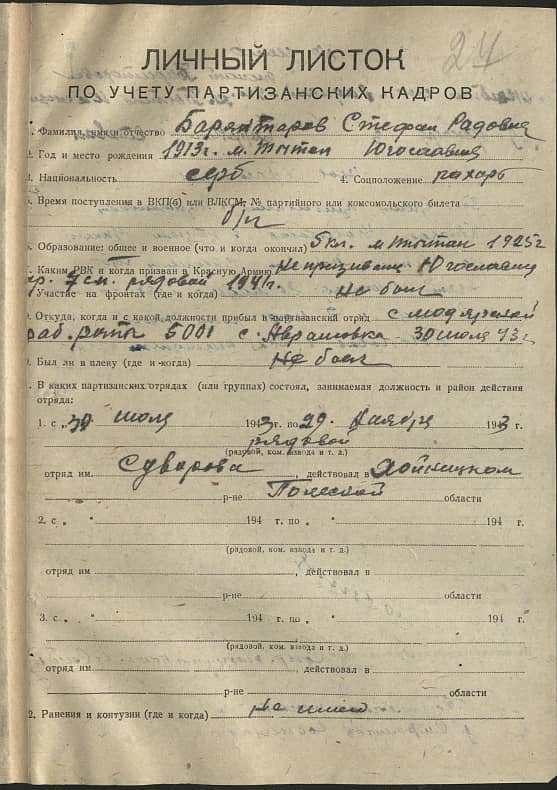 24
ЛИЧНЫЙ ЛИСТОК
ПО УЧЕТУ ПАРТИЗАНСКИХ КАДРОВ
. Фамилия, имя и отчество Барактаров Стефан Радович
2. Год и место рождения 1913 г. м. Тытал Югославия
3. Национальность серб 4. Соцположение пахарь
5. Время поступления в ВКП(б) или ВЛКСМ, № партийного или комсомольского билета
б/п
6. Образование: общее и военное (что и когда окончил) 5 кл. м. Тытал 1925 г
7. Каким РВК и когда призван в Красную Армию Не призывался Югославия
рядовой 1941 г.
8. Участие на фронтах (где и когда) Не был
9. Откуда, когда и с какой должности прибыл в партизанский отряд с мадярской
раб. роты с. Аврамовка 30 июля 43 г.
. Был ли в плену (где и когда) Не был
. В каких партизанских отрядах (или группах) состоял, занимаемая должность и район действия
отряда:
1. с „30 июля 1943 г. по 29. Ноября 1943 г.
рядовой
(рядовой, ком. взвода и т. д.)
отряд им. Суворова, действовал в Хойницком
р-не Полеской области
2. с „ “ 194 г. по „ “ 194 г.
(рядовой, ком. взвода и т. д.)
отряд им , действовал в
р-не области
3. с „ “ 194 г. по „ “ 194 г.
(рядовой, ком. взвода и т. д.)
отряд им. действовал в
р-не области
2. Ранения и контузии (где и когда)